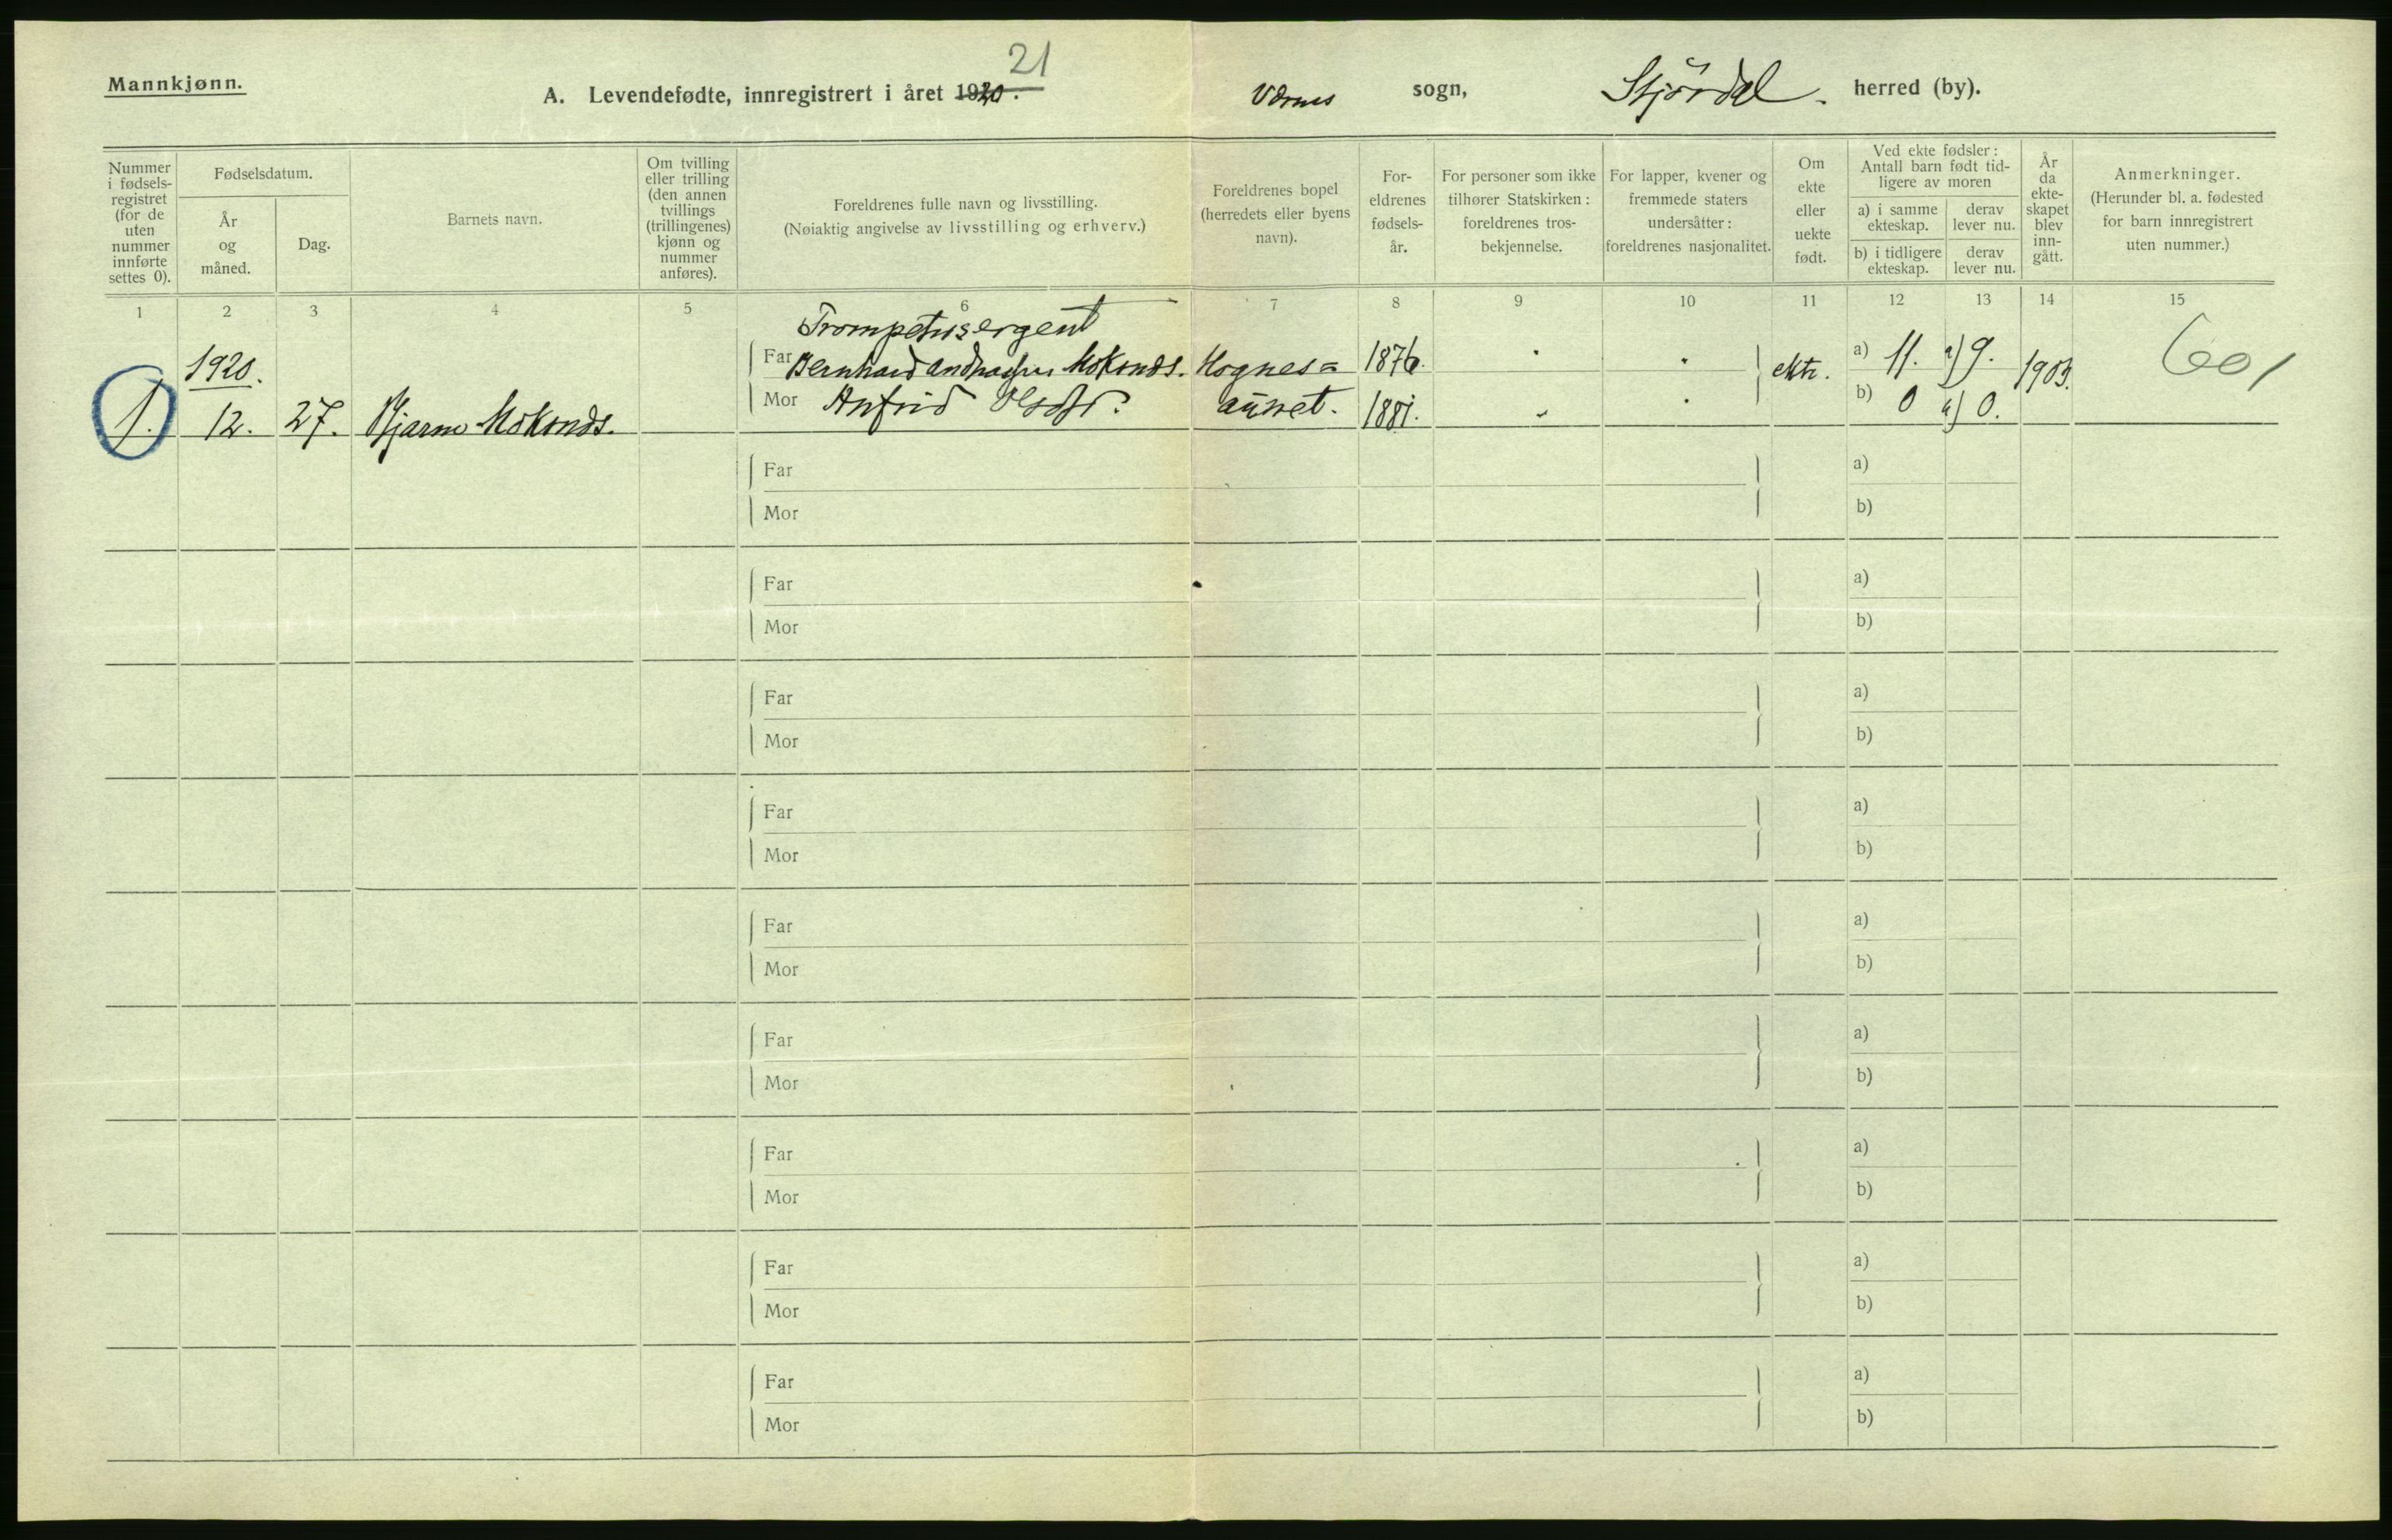 Mannkjønn.
A. Levendefødte, innregistrert i året 1920.
21
Værnes sogn, Stjördal. herred (by).
Nummer i fødsels- registret (for de uten nummer innførte settes 0).
Fødselsdatum.
År og måned.
Dag.
Barnets navn.
Om tvilling eller trilling (den annen tvillings (trillingenes) kjønn og nummer anføres).
Foreldrenes fulle navn og livsstilling.
(Nøiaktig angivelse av livsstilling og erhverv.)
Foreldrenes bopel (herredets eller byens navn).
For- eldrenes fødsels- år.
For personer som ikke tilhører Statskirken: foreldrenes tros- bekjennelse.
For lapper, kvener og fremmede staters undersåtter: foreldrenes nasjonalitet.
Om ekte eller uekte født.
Ved ekte fødsler: Antall barn født tid- ligere av moren
a) i samme ekteskap.
derav lever nu.
b) i tidligere ekteskap.
derav lever nu.
År da ekte- skapet blev inn- gått.
Anmerkninger.
(Herunder bl. a. fødested for barn innregistrert uten nummer.)
1 2 3 4 5 6 7 8 9 10 11 12 13 14 15
Trompetersergent
1920. Far Bernhard Andreassen Moksnes. Hognes= 1876 " " ekte. a) 11. a) 9. 1903. 601
1. 12. 27. Bjarne Moksnes. Mor Anfrid Olsdtr. aunet. 1881. " " b) 0 b) 0.
Far a)
Mor b)
Far a)
Mor b)
Far a)
Mor b)
Far a)
Mor b)
Far a)
Mor b)
Far a)
Mor b)
Far a)
Mor b)
Far a)
Mor b)
Far a)
Mor b)